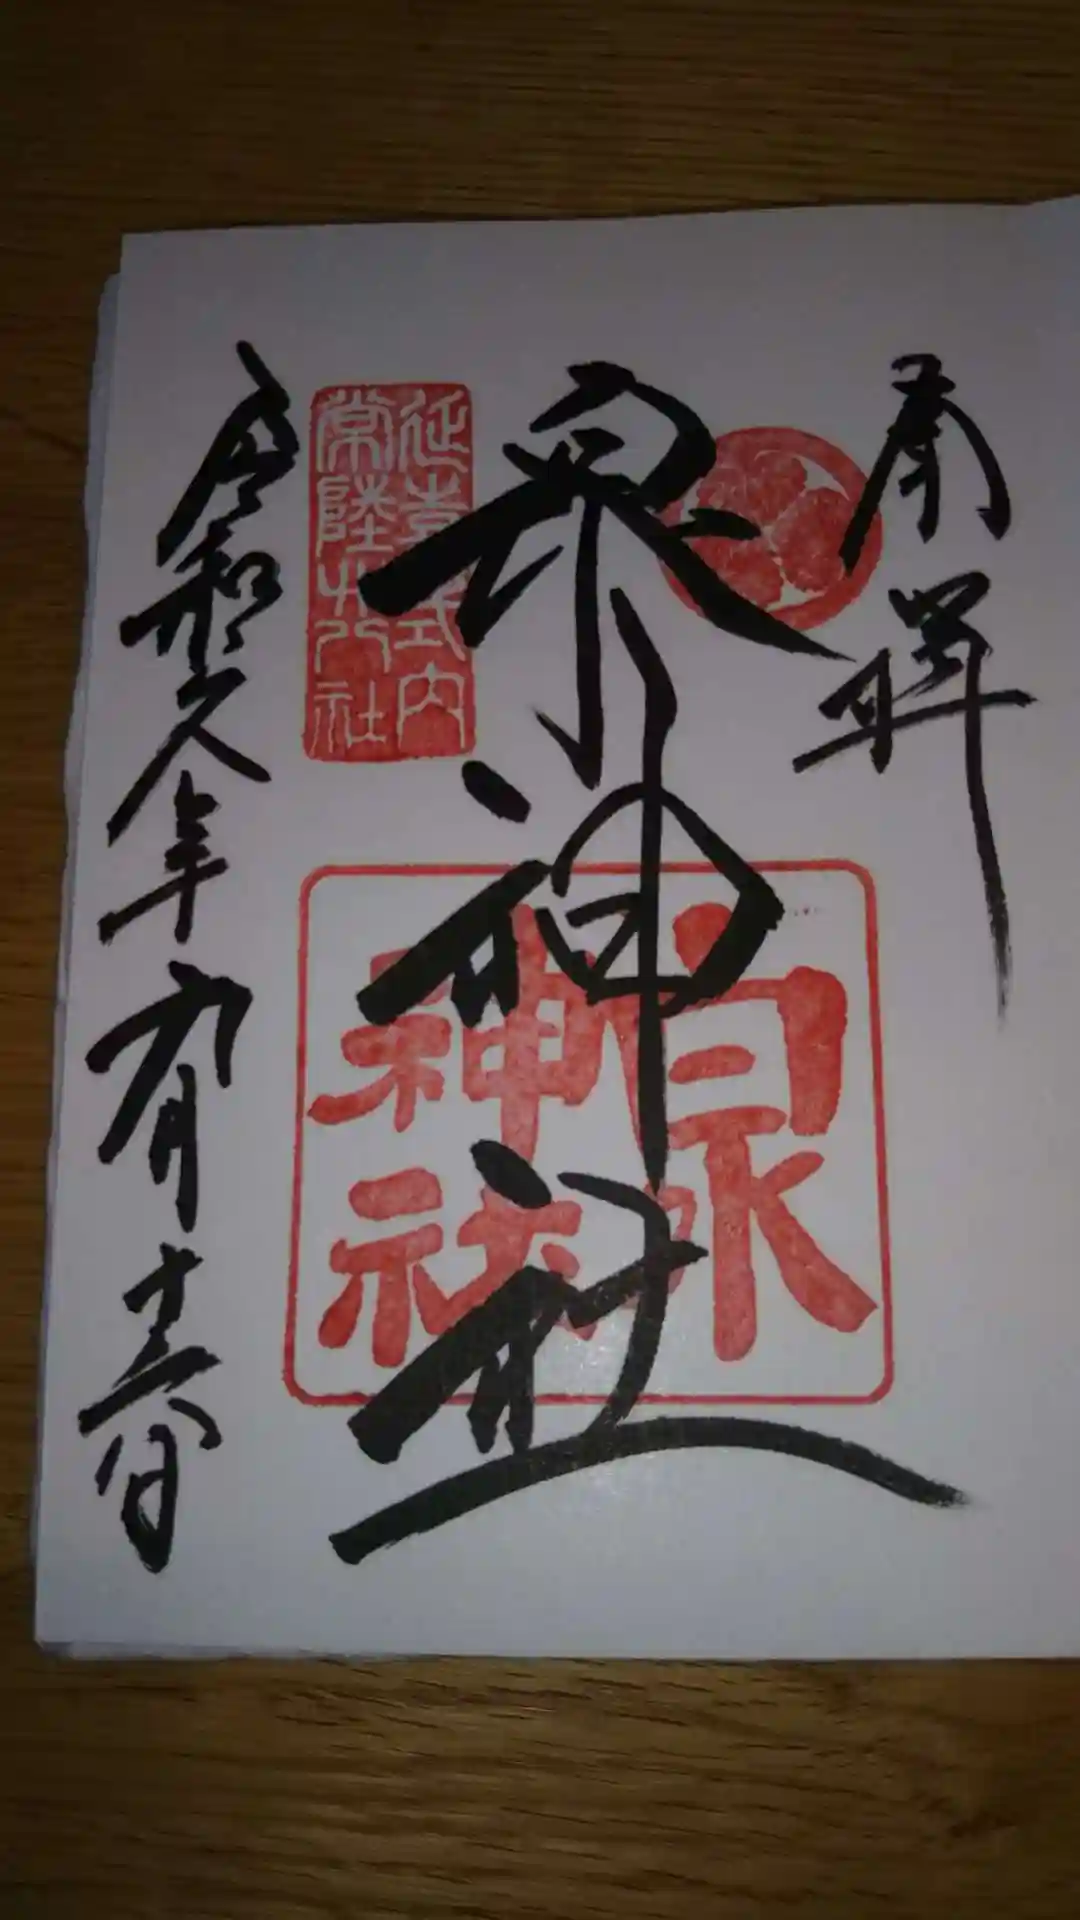 奉拝
泉神社
延喜式内
常陸廿八社
泉神社
令和元年九月十六日